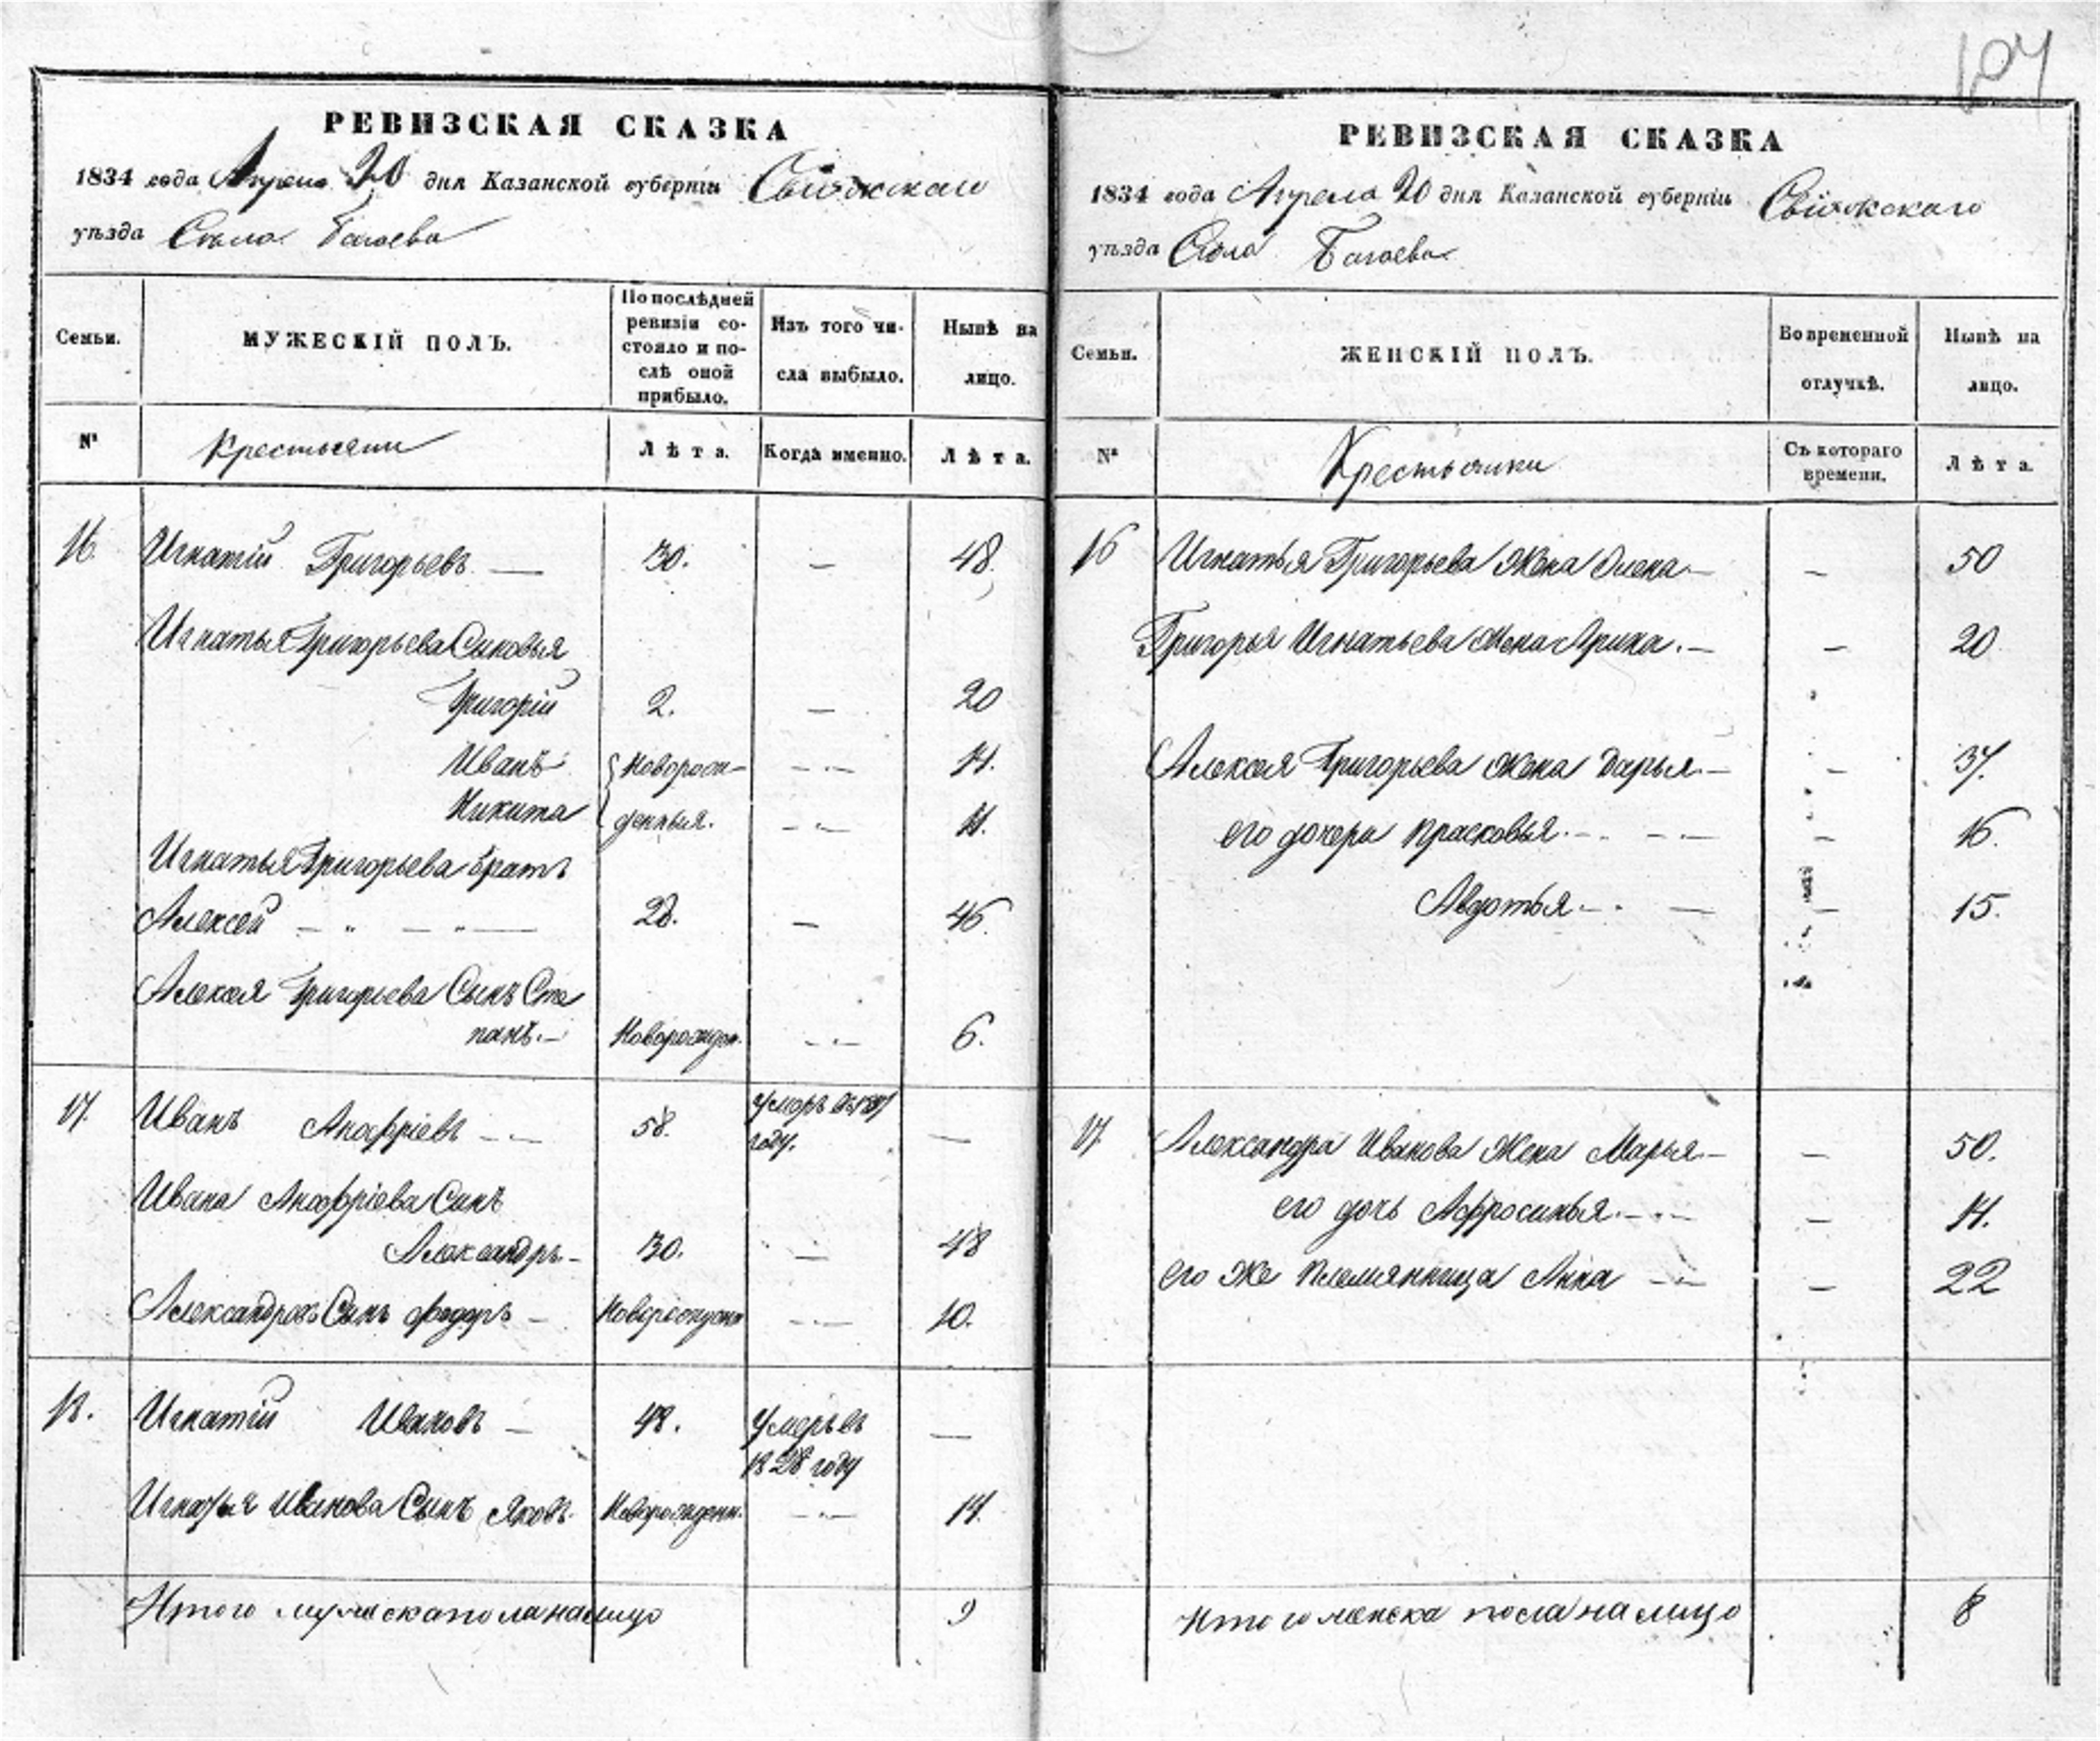 104
РЕВИЗСКАЯ СКАЗКА
1834 года Апреля 20 дня Казанской губерніи Свіяжскаго
уѣзда Села Багаева
Семьи.
МУЖЕСКІЙ ПОЛЪ.
По послѣдней
ревизіи со-
стояло и по-
слѣ оной
прибыло.
Изъ того чи-
сла выбыло.
Нынѣ на
лицо.
№
Крестьяни
Лѣта.
Когда именно.
Лѣта.
16 Игнатій Григорьевъ — 30. — 48.
Игнатья Григорьева Сыновья
Григорій 2. — 20
Иванъ Новорож- — 14.
Никита денныя. — 11.
Игнатья Григорьева братъ
Алексей 28. — 46.
Алексея Григорьева Сынъ Сте
панъ.— Новорожден. — 6.
17. Иванъ Анофріевъ 58. Умеръ въ
году. —
Ивана Анофріева Сынъ
Александръ— 30. — 48
Александровъ Сынъ Федоръ — Новорожден — 10.
18. Игнатій Ивановъ — 48. Умеръ въ —
1828 году
Игнатья Иванова Сынъ Яковъ. Новорожденн. — 14.
Итого мужска пола налицо 9
РЕВИЗСКАЯ СКАЗКА
1834 года Апреля 20 дня Казанской губерніи Свіяжскаго
уѣзда Села Багаева
Семьи.
ЖЕНСКІЙ ПОЛЪ.
Во временной
отлучкѣ.
Нынѣ на
лицо.
№
Крестьянки
Съ котораго
времени.
Лѣта.
16 Игнатья Григорьева Жена Олена.— — 50
Григорья Игнатьева Жена Арина.— — 20
Алексея Григорьева Жена Дарья.— — 37.
его дочери Прасковья.— — 16.
Авдотья.— — 15.
17. Александра Иванова Жена Марья.— — 50.
его дочь Афросинья.— — 14.
его же племянница Анна — — 22
Итого женска пола налицо 8